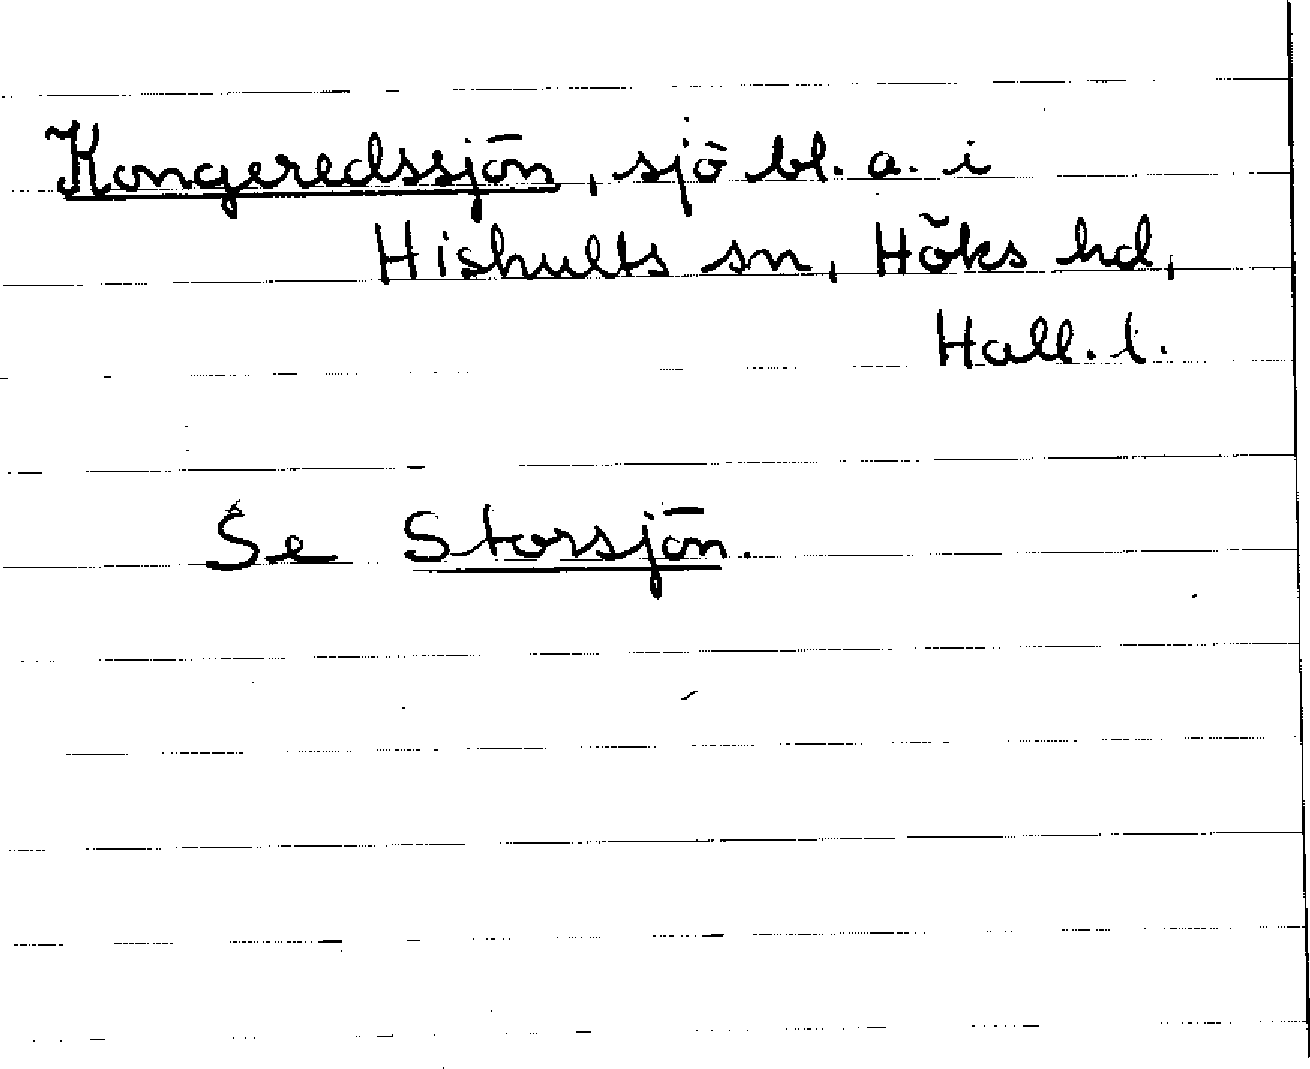 Kongeredssjön, sjö bl. a. i
Hishults sn, Höks hd,
Hall. l.
Se Storsjön.